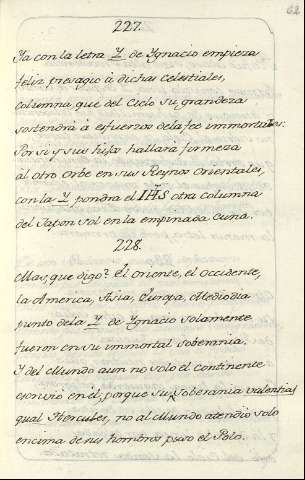 62
227.
Ya con la letra Y de Ygnacio empieza
feliz presagio â dichas celestiales,
columna que del Cielo su grandeza
sostendrâ â esfuerzos dela fee immortales:
Por si y sus hijos hallarâ firmeza
al otro Orbe en sus Reynos Orientales,
con la Y pondra el IHS otra columna
del Japon Sol en la empinada Cuna.
228.
Mas, que digo? El Oriente, el Occidente,
la America, Asia, Europa, Mediodia
punto dela Y de Ygnacio solamente
fueron en su immortal soberania.
Y del Mundo aun no solo el Continente
en él, porque su Soberania valential
qual Hercules, no al Mundo atendiô solo
encima de sus hombros puso el Polo.